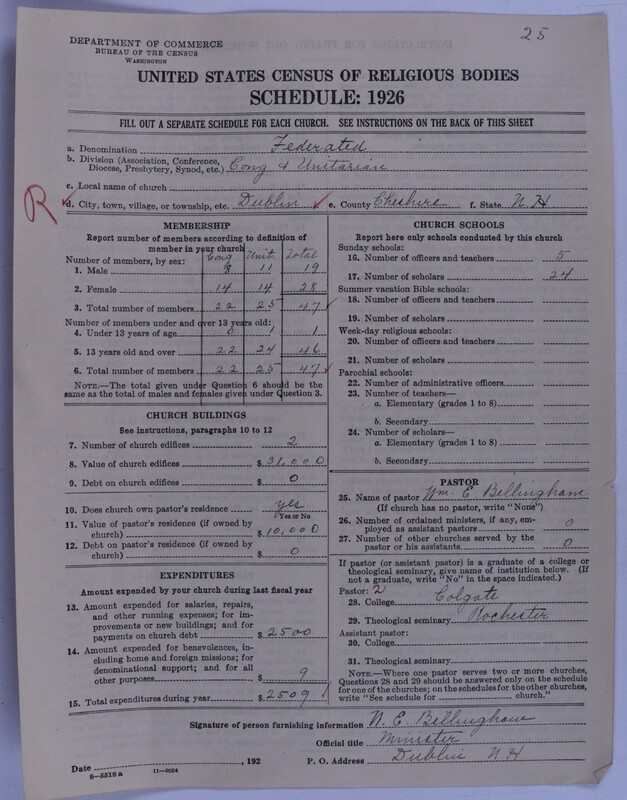 25
DEPARTMENT OF COMMERCE
BUREAU OF THE CENSUS
WASHINGTON
UNITED STATES CENSUS OF RELIGIOUS BODIES
SCHEDULE: 1926
FILL OUT A SEPARATE SCHEDULE FOR EACH CHURCH. SEE INSTRUCTIONS ON THE BACK OF THIS SHEET
a. Denomination Federated
b. Division (Association, Conference, Diocese, Presbytery, Synod, etc.) Cong & Unitarian
c. Local name of church
R
d. City, town, village, or township, etc. Dublin e. County Cheshire f. State N. H
MEMBERSHIP
Report number of members according to definition of
member in your church
Number of members, by sex: Cong Unit. Total
1. Male 8 11 19
2. Female 14 14 28
3. Total number of members 22 25 47
Number of members under and over 13 years old:
4. Under 13 years of age 0 1 1
5. 13 years old and over 22 24 46
6. Total number of members 22 25 47
NOTE.—The total given under Question 6 should be the
same as the total of males and females given under Question 3.
CHURCH BUILDINGS
See instructions, paragraphs 10 to 12
7. Number of church edifices 2
8. Value of church edifices $31,000
9. Debt on church edifices $ 0
10. Does church own pastor's residence yes
Yes or No
11. Value of pastor's residence (if owned by
church) $10,000
12. Debt on pastor's residence (if owned by
church) $ 0
EXPENDITURES
Amount expended by your church during last fiscal year
13. Amount expended for salaries, repairs,
and other running expenses; for im-
provements or new buildings; and for
payments on church debt $2500
14. Amount expended for benevolences, in-
cluding home and foreign missions; for
denominational support; and for all
other purposes $ 9
15. Total expenditures during year $2509
CHURCH SCHOOLS
Report here only schools conducted by this church
Sunday schools:
16. Number of officers and teachers 5
17. Number of scholars 24
Summer vacation Bible schools:
18. Number of officers and teachers
19. Number of scholars
Week-day religious schools:
20. Number of officers and teachers
21. Number of scholars
Parochial schools:
22. Number of administrative officers
23. Number of teachers—
a. Elementary (grades 1 to 8)
b. Secondary
24. Number of scholars—
a. Elementary (grades 1 to 8)
b. Secondary
PASTOR
25. Name of pastor Wm. E. Bellingham
(If church has no pastor, write "None")
26. Number of ordained ministers, if any, em-
ployed as assistant pastors 0
27. Number of other churches served by the
pastor or his assistants 0
If pastor (or assistant pastor) is a graduate of a college or
theological seminary, give name of institution below. (If
not a graduate, write "No" in the space indicated.)
Pastor: 2
28. College Colgate
29. Theological seminary Rochester
Assistant pastor:
30. College
31. Theological seminary
NOTE.—Where one pastor serves two or more churches,
Questions 28 and 29 should be answered only on the schedule
for one of the churches; on the schedules for the other churches,
write "See schedule for church."
Signature of person furnishing information W. E. Bellingham
Official title Minister
Date , 192 P. O. Address Dublin N H
8—5318 a 11—9054